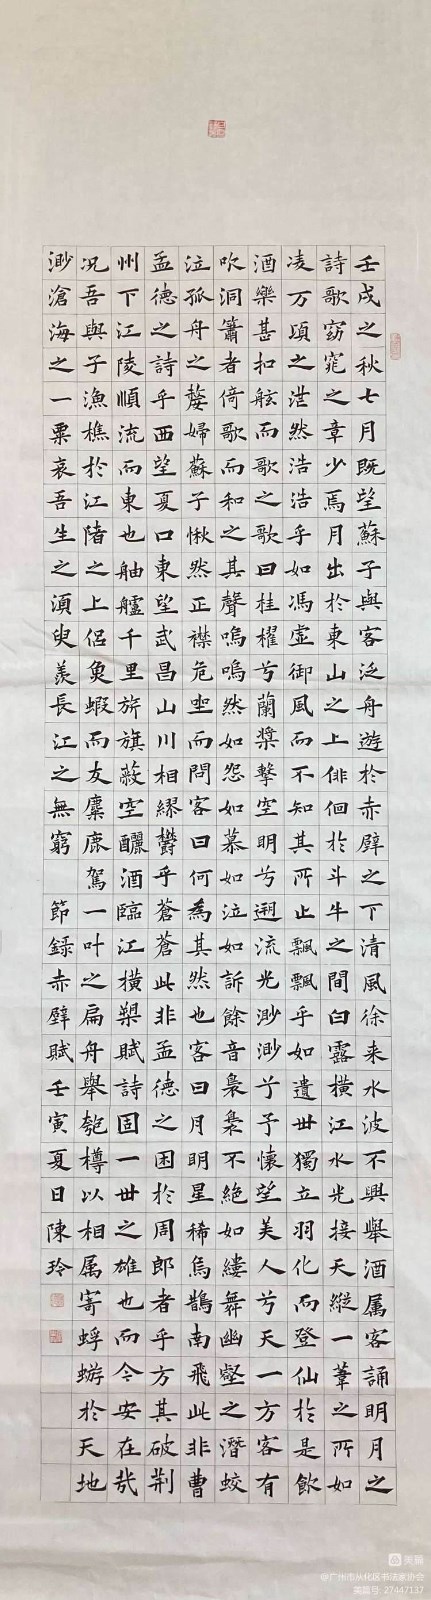 壬戌之秋七月既望蘇子與客泛舟遊於赤壁之下清風徐来水波不興舉酒属客誦明月之
詩歌窈窕之章少焉月出於東山之上俳佪於斗牛之間白露橫江水光接天縱一葦之所如
凌万頃之茫然浩浩乎如馮虚御風而不知其所止飄飄乎如遺世獨立羽化而登仙於是飲
酒樂甚扣舷而歌之歌曰桂櫂兮蘭槳擊空明兮遡流光渺渺兮予懷望美人兮天一方客有
吹洞簫者倚歌而和之其聲嗚嗚然如怨如慕如泣如訴餘音裊裊不絕如縷舞幽壑之潛蛟
泣孤舟之嫠婦蘇子愀然正襟危坐而問客曰何為其然也客曰月明星稀烏鵲南飛此非曹
孟德之詩乎西望夏口東望武昌山川相繆鬱乎蒼蒼此非孟德之困於周郎者乎方其破荆
州下江陵順流而東也舳艫千里旌旗蔽空釃酒臨江橫槊賦詩固一世之雄也而今安在哉
况吾與子漁樵於江陼之上侶魚蝦而友麋鹿駕一叶之扁舟舉匏樽以相属寄蜉蝣於天地
渺滄海之一粟哀吾生之須臾羨長江之無窮 節録赤壁賦壬寅夏日陳玲
美篇
@广州市从化区书法家协会
美篇号: 27447137